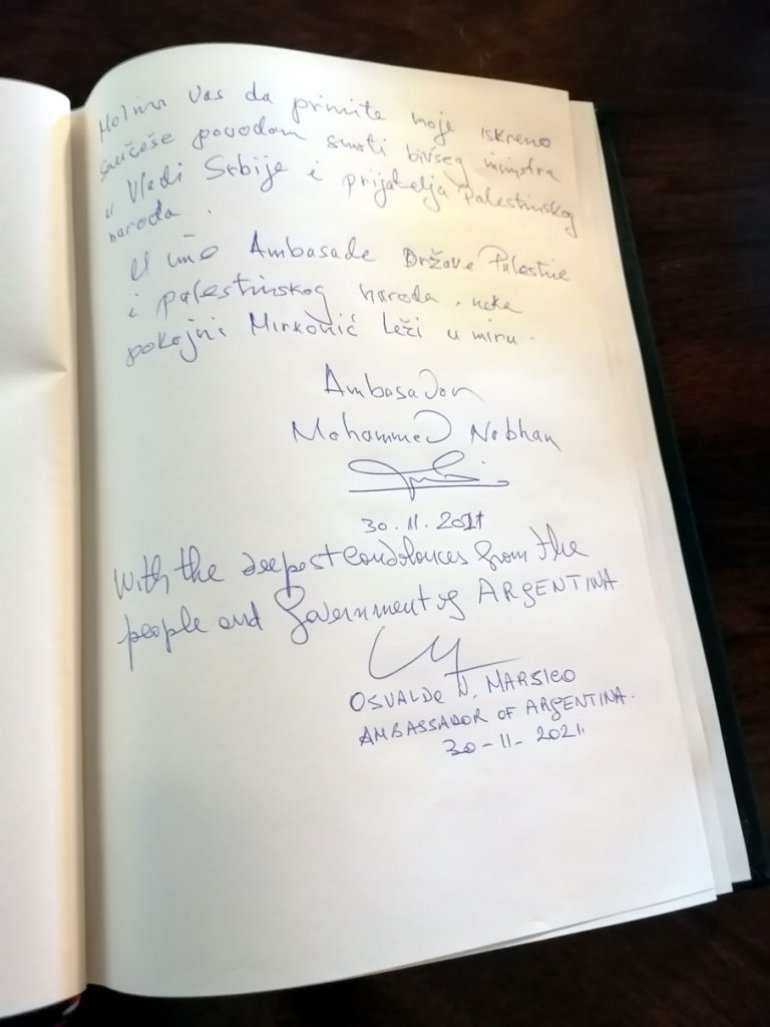 Molim Vas da primite moje iskreno
saučešće povodom smrti bivšeg ministra
u Vladi Srbije i prijatelja Palestinskog
naroda.
U ime Ambasade Države Palestine
i palestinskog naroda, neka
pokojni Mirković leži u miru.
Ambasador
Mohammed Nabhan
30.11.2021
With the deepest condolances from the
people and Government of ARGENTINA
OSVALDO N. MARSICO
AMBASSADOR OF ARGENTINA.
30-11-2021.